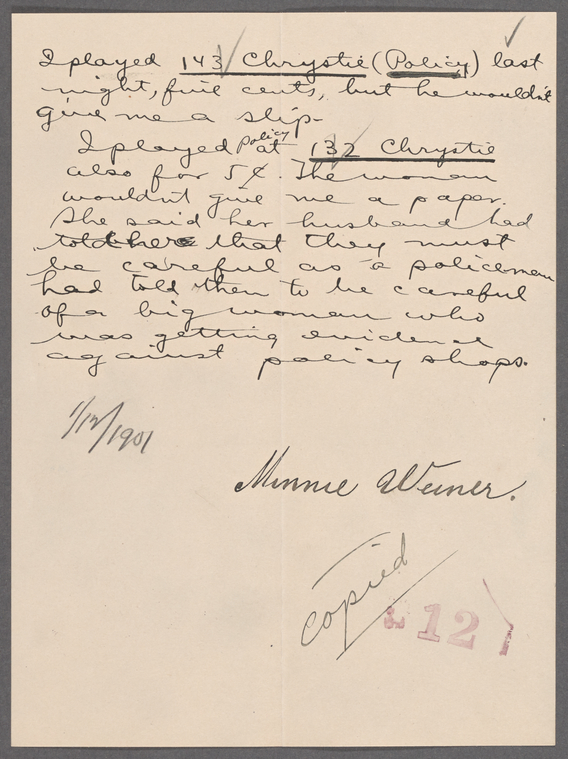 I played 143 Chrystie (Policy) last
night, five cents, but he wouldn't
give me a slip.
I played policy at 132 Chrystie
also for 5¢. The woman
wouldn't give me a paper.
She said her husband had
told her that they must
be careful as a policeman
had told them to be careful
of a big woman who
was getting evidence
against policy shops.
1/12/1901
Minnie Weiner.
copied
12